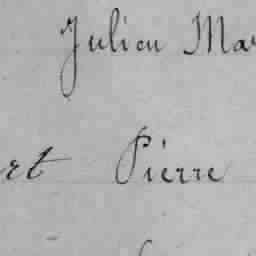 Julien Mar
et Pierre